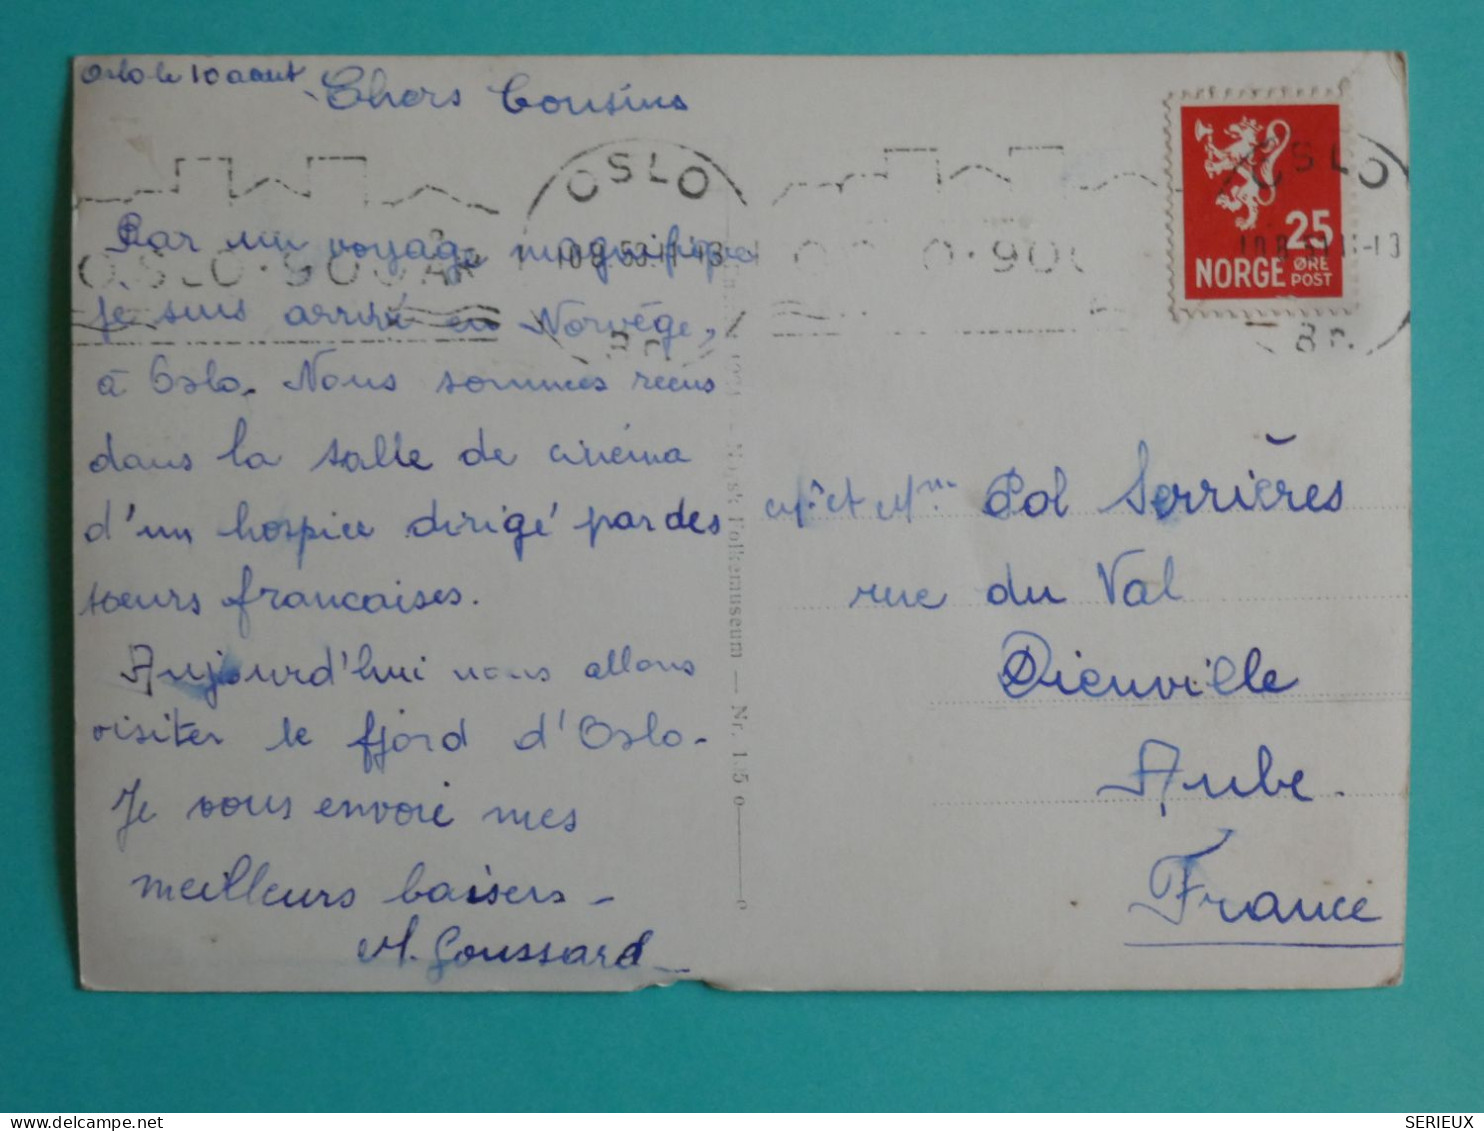 Oslo le 10 aout
Chers Cousins
OSLO
OSLO · 900 ÅR
10.8.50.11-13
Br.
OSLO
O · 900
11-13
Br.
25
NORGE ØRE
POST
Par un voyage magnifique
je suis arrivé en Norvège,
à Oslo. Nous sommes recus
dans la salle de cinéma
d'un hospice dirigé par des
soeurs francaises.
Aujourd'hui nous allons
visiter le fjord d'Oslo.
Je vous envoie mes
meilleurs baisers
M. Goussard
Norsk Folkemuseum — Nr.
Mr et Mme Pol Serrières
rue du Val
Dienville
Aube.
France
delcampe.net
SERIEUX